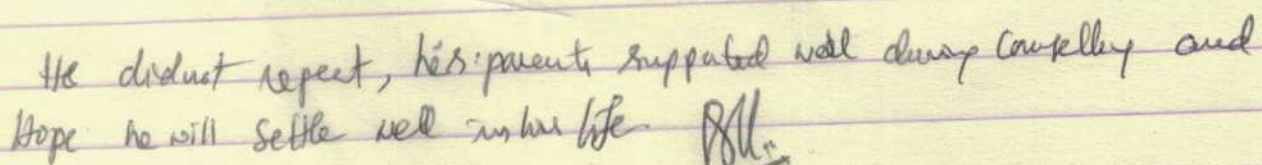 He didnst repeat, his parents suppated well during Counselling and
Hope he will settle well in his life